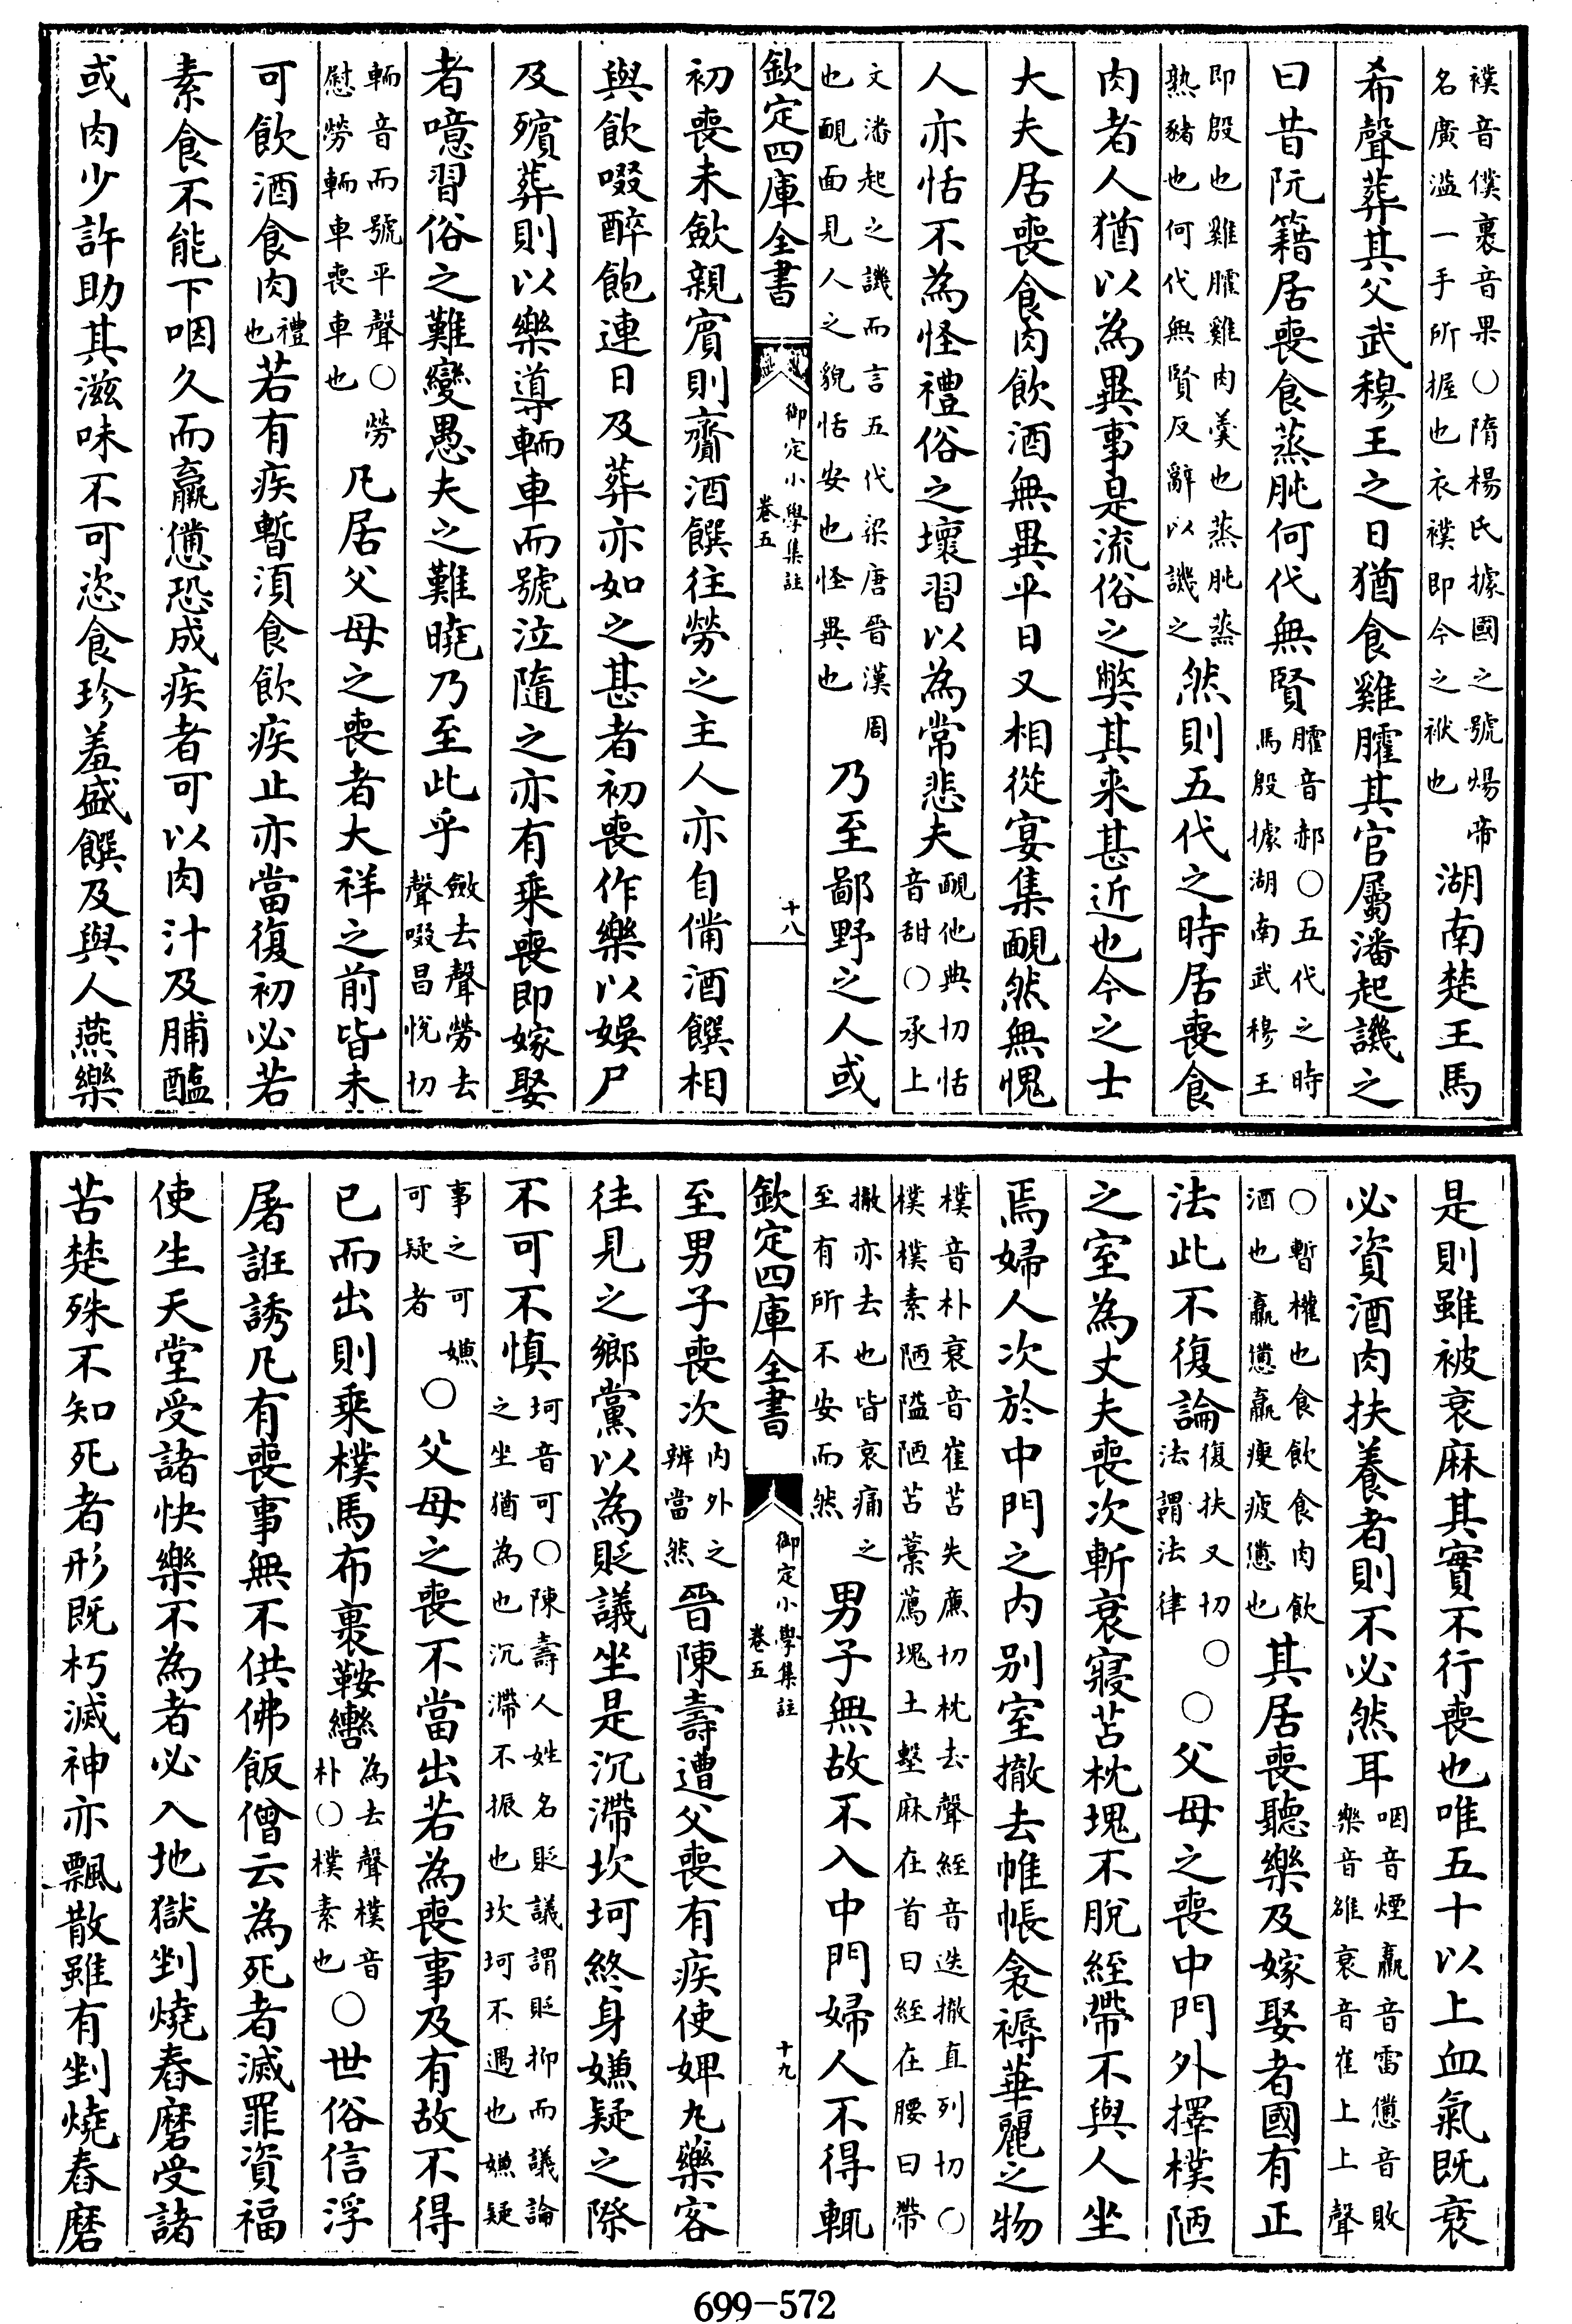 襆音僕裹音果○隋楊氏據國之號煬帝名廣溢一手所握也衣襆即今之袱也湖南楚王馬
希聲葬其父武穆王之日猶食雞臛其官屬潘起譏之
曰昔阮籍居喪食蒸肫何代無賢臛音郝○五代之時馬殷據湖南武穆王
即殷也雞臛雞肉羹也蒸肫蒸熟豬也何代無賢反辭以譏之然則五代之時居喪食
肉者人猶以為異事是流俗之弊其来甚近也今之士
大夫居喪食肉飲酒無異平日又相從宴集靦然無愧
人亦恬不為怪禮俗之壞習以為常悲夫靦他典切恬音甜○承上
文潘起之譏而言五代梁唐晉漢周也靦面見人之貌恬安也怪異也乃至鄙野之人或
欽定四庫全書 御定小學集註 卷五 十八
初喪未斂親賓則齎酒饌往勞之主人亦自備酒饌相
與飲啜醉飽連日及葬亦如之甚者初喪作樂以娛尸
及殯葬則以樂導輀車而號泣隨之亦有乘喪即嫁娶
者噫習俗之難變愚夫之難曉乃至此乎斂去聲勞去聲啜昌悅切
輀音而號平聲○勞慰勞輀車喪車也凡居父母之喪者大祥之前皆未
可飲酒食肉禮也若有疾暫須食飲疾止亦當復初必若
素食不能下咽久而羸憊恐成疾者可以肉汁及脯醢
或肉少許助其滋味不可恣食珍羞盛饌及與人燕樂
是則雖被衰麻其實不行喪也唯五十以上血氣既衰
必資酒肉扶養者則不必然耳咽音煙羸音雷憊音敗樂音雒衰音崔上上聲
○暫權也食飲食肉飲酒也羸憊羸瘦疲憊也其居喪聽樂及嫁娶者國有正
法此不復論復扶又切法謂法律○○父母之喪中門外擇樸陋
之室為丈夫喪次斬衰寢苫枕塊不脫絰帶不與人坐
焉婦人次於中門之内别室撤去帷帳衾褥華麗之物
樸音朴衰音崔苫失廉切枕去聲絰音迭撤直列切○樸樸素陋陋隘苫藁薦塊土墼麻在首曰絰在腰曰帶
撤亦去也皆哀痛之至有所不安而然男子無故不入中門婦人不得輒
欽定四庫全書 御定小學集註 卷五 十九
至男子喪次内外之辨當然晉陳壽遭父喪有疾使婢丸藥客
往見之鄉黨以為貶議坐是沉滯坎坷終身嫌疑之際
不可不慎坷音可○陳壽人姓名貶議謂貶抑而議論之坐猶為也沉滯不振也坎坷不遇也嫌疑
事之可嫌可疑者○父母之喪不當出若為喪事及有故不得
已而出則乘樸馬布裹鞍轡為去聲樸音朴○樸素也○世俗信浮
屠誑誘凡有喪事無不供佛飯僧云為死者滅罪資福
使生天堂受諸快樂不為者必入地獄剉燒舂磨受諸
苦楚殊不知死者形既朽滅神亦飄散雖有剉燒舂磨
699-572